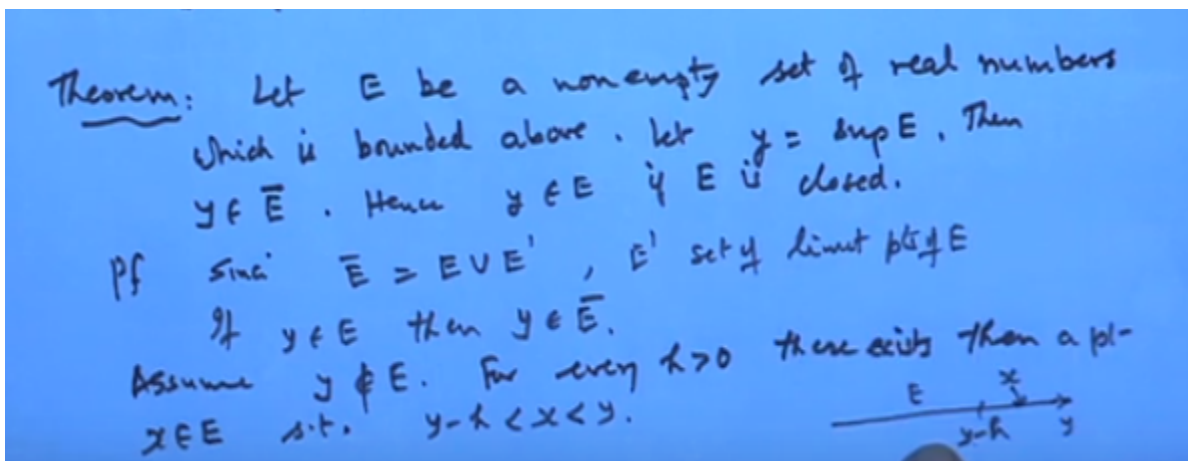 Theorem: Let E be a nonempty set of real numbers
which is bounded above. Let y = sup E. Then
y ∈ Ē. Hence y ∈ E if E is closed.
Pf Since Ē = E ∪ E', E' set of limit pts of E
If y ∈ E then y ∈ Ē.
Assume y ∉ E. For every h>0 there exists then a pt-
x ∈ E s.t. y-h < x < y.
E x
y-h y